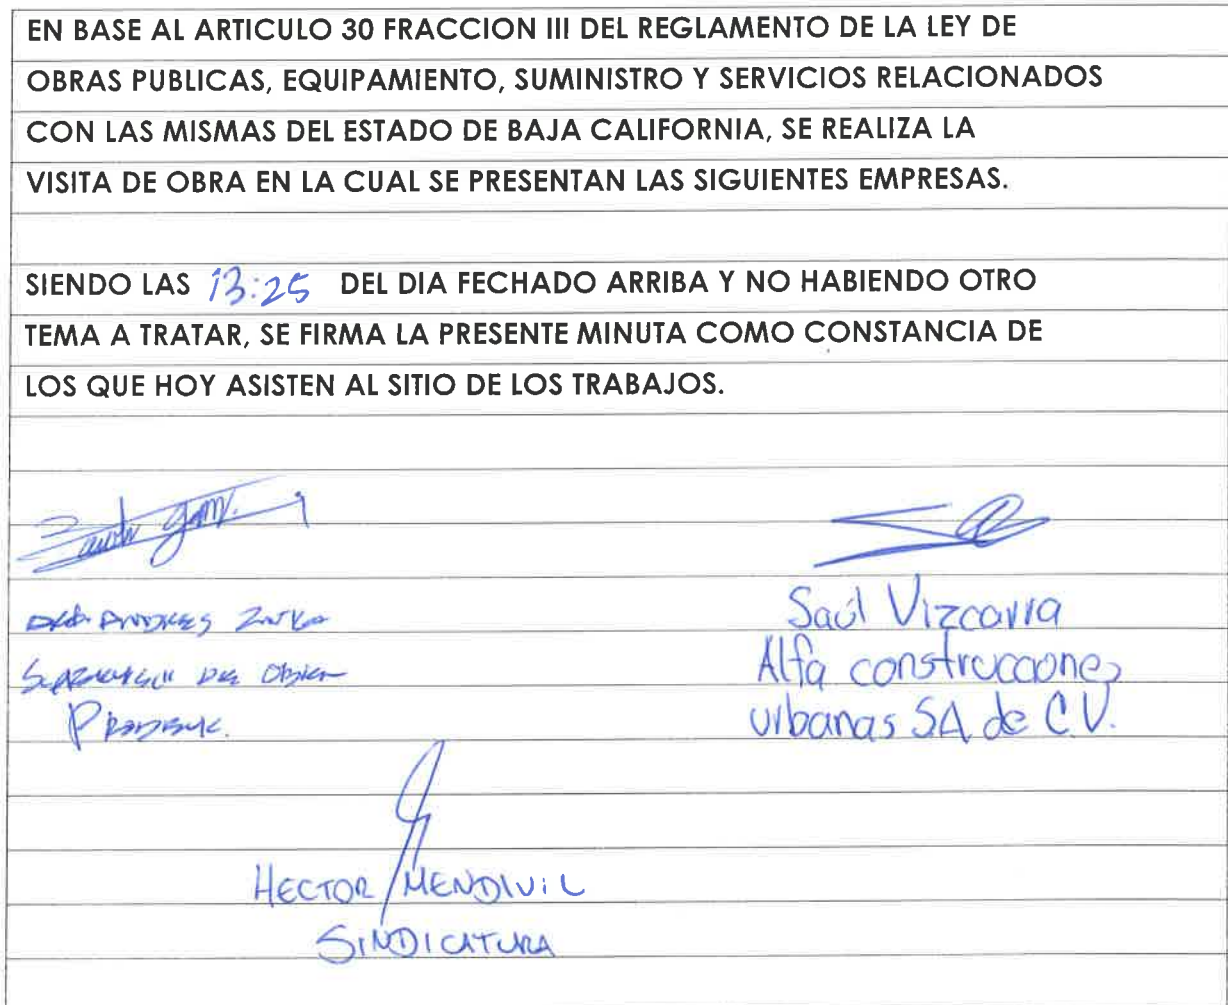 EN BASE AL ARTICULO 30 FRACCION III DEL REGLAMENTO DE LA LEY DE
OBRAS PUBLICAS, EQUIPAMIENTO, SUMINISTRO Y SERVICIOS RELACIONADOS
CON LAS MISMAS DEL ESTADO DE BAJA CALIFORNIA, SE REALIZA LA
VISITA DE OBRA EN LA CUAL SE PRESENTAN LAS SIGUIENTES EMPRESAS.
SIENDO LAS 13:25 DEL DIA FECHADO ARRIBA Y NO HABIENDO OTRO
TEMA A TRATAR, SE FIRMA LA PRESENTE MINUTA COMO CONSTANCIA DE
LOS QUE HOY ASISTEN AL SITIO DE LOS TRABAJOS.
Saúl Vizcarra
Alfa construcciones
urbanas SA de C.V.
HECTOR MENDIVIL
SINDICATURA